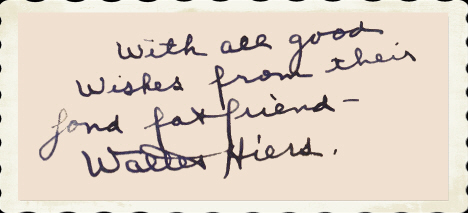 With all good
Wishes from their
fond fat friend -
Walter Hiers.